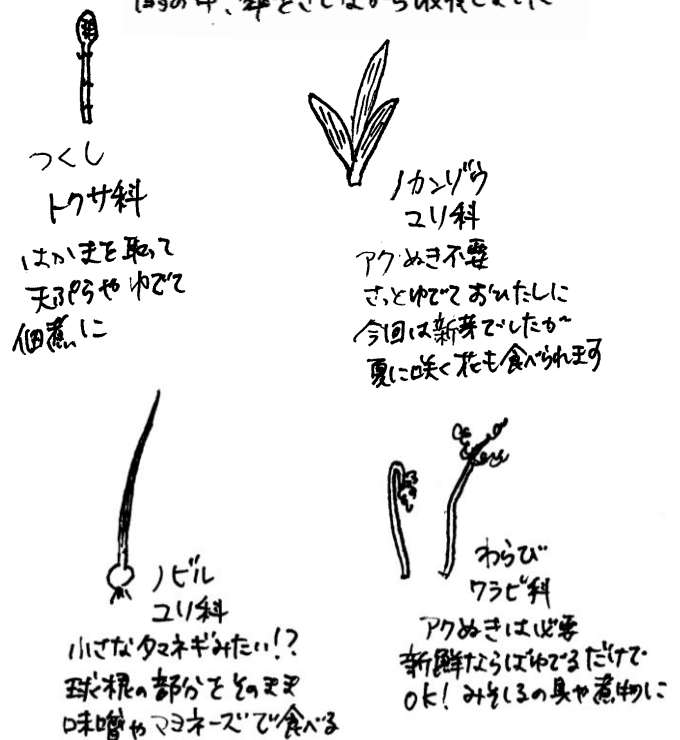 雨の中、傘をさしながら収穫しました
つくし
トクサ科
はかまを取って
天ぷらやゆでて
佃煮に
ノカンゾウ
ユリ科
アクぬき不要
さっとゆでておひたしに
今回は新芽でしたが
夏に咲く花も食べられます
ノビル
ユリ科
小さなタマネギみたい!?
球根の部分をそのまま
味噌やマヨネーズで食べる
わらび
ワラビ科
アクぬきは必要
新鮮ならばゆでるだけで
OK! みそしるの具や煮物に